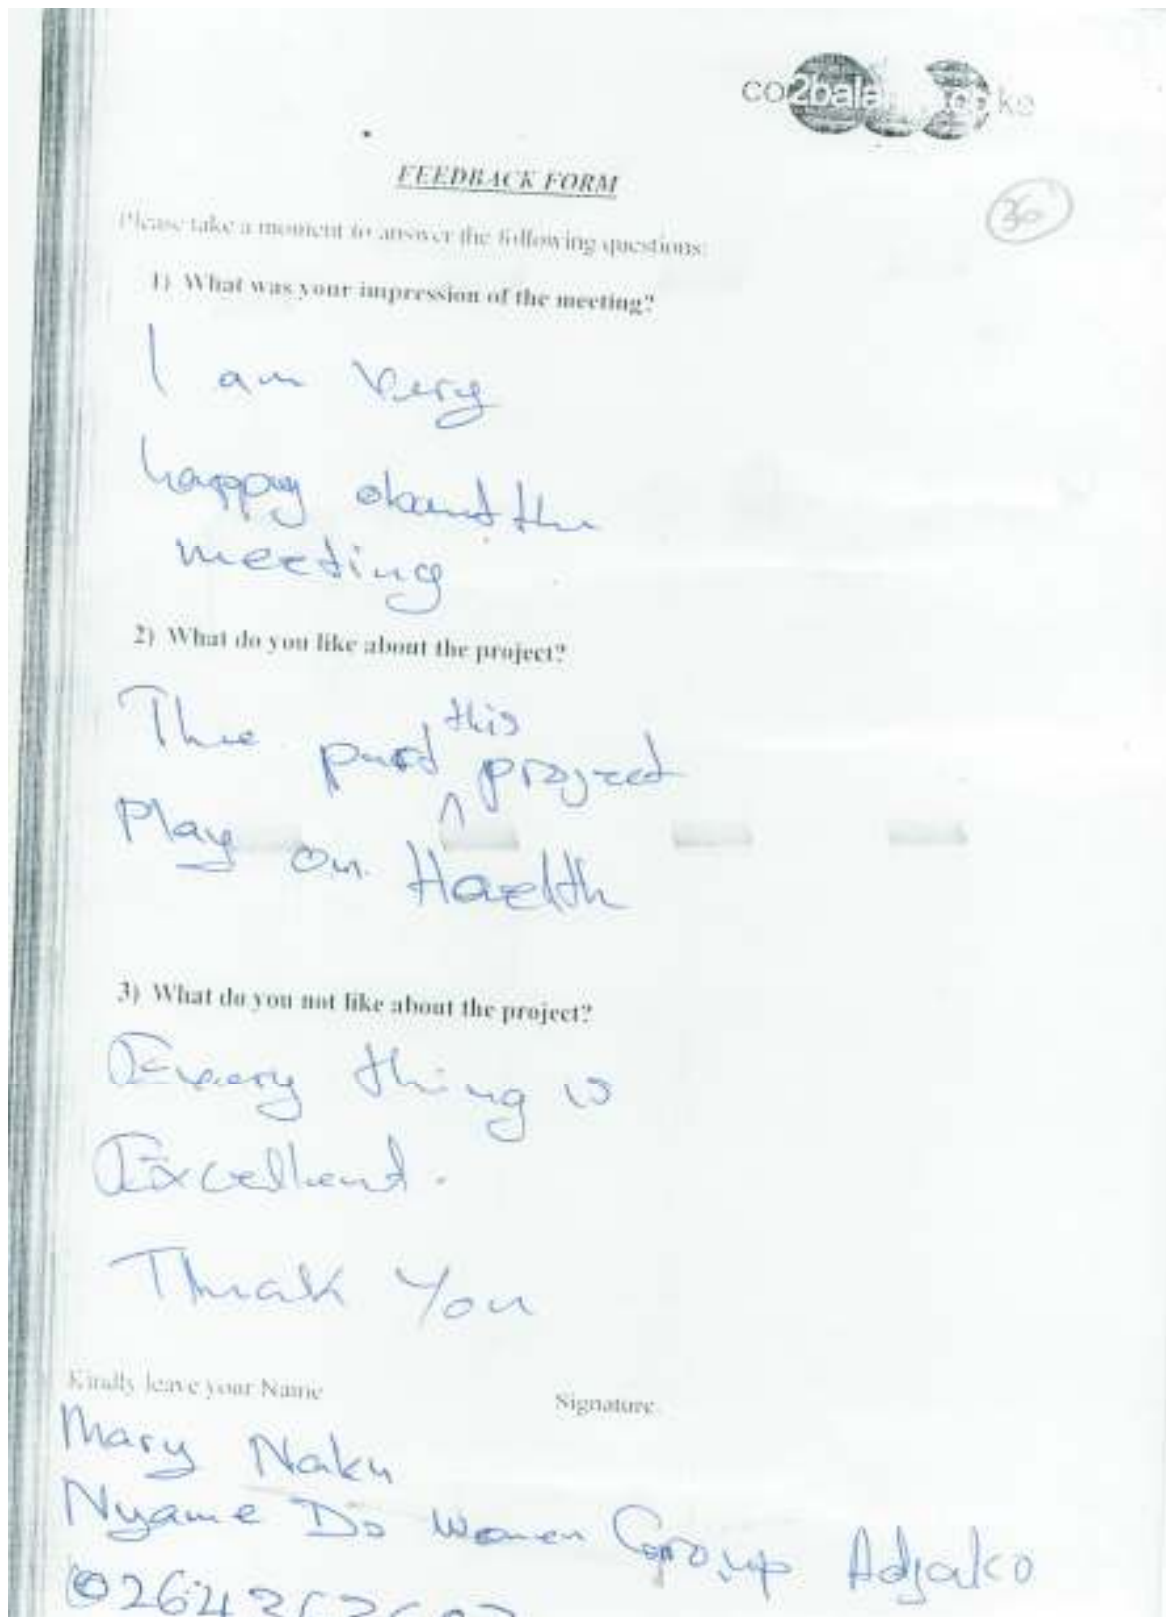 co2bala co ke
FEEDBACK FORM
36
Please take a moment to answer the following questions:
1) What was your impression of the meeting?
I am very
happy about the
meeting
2) What do you like about the project?
The part this project
Play on Health
3) What do you not like about the project?
Every thing is
Excellent.
Thank You
Kindly leave your Name Signature
Mary Naku
Nyame Do Women Group Adjako